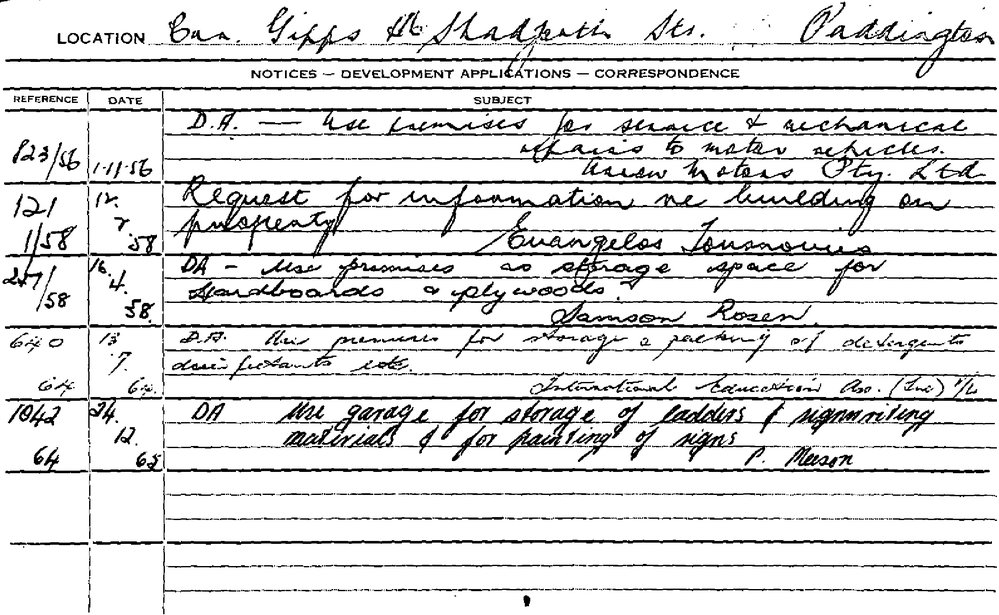 LOCATION Cnr. Gipps & Shadforth Sts. Paddington
NOTICES — DEVELOPMENT APPLICATIONS — CORRESPONDENCE
REFERENCE DATE SUBJECT
D.A. — Use premises for service & mechanical
823/56 1-11-56 repairs to motor vehicles.
Motors Pty. Ltd
121 12. Request for information re building on
1/58 2. 58 property
Evangelos
247 16. DA - Use premises as storage space for
/58 4. Hardboards & plywoods.
58. Samson Rosen.
640 13 D.A. Use premises for storage & packing of detergents
7. disinfectants etc.
64 64. International Education Ass. (Inc) P/L
1042 24. DA Use garage for storage of ladders & signwriting
12. materials & for painting of signs
64 P. Meeson